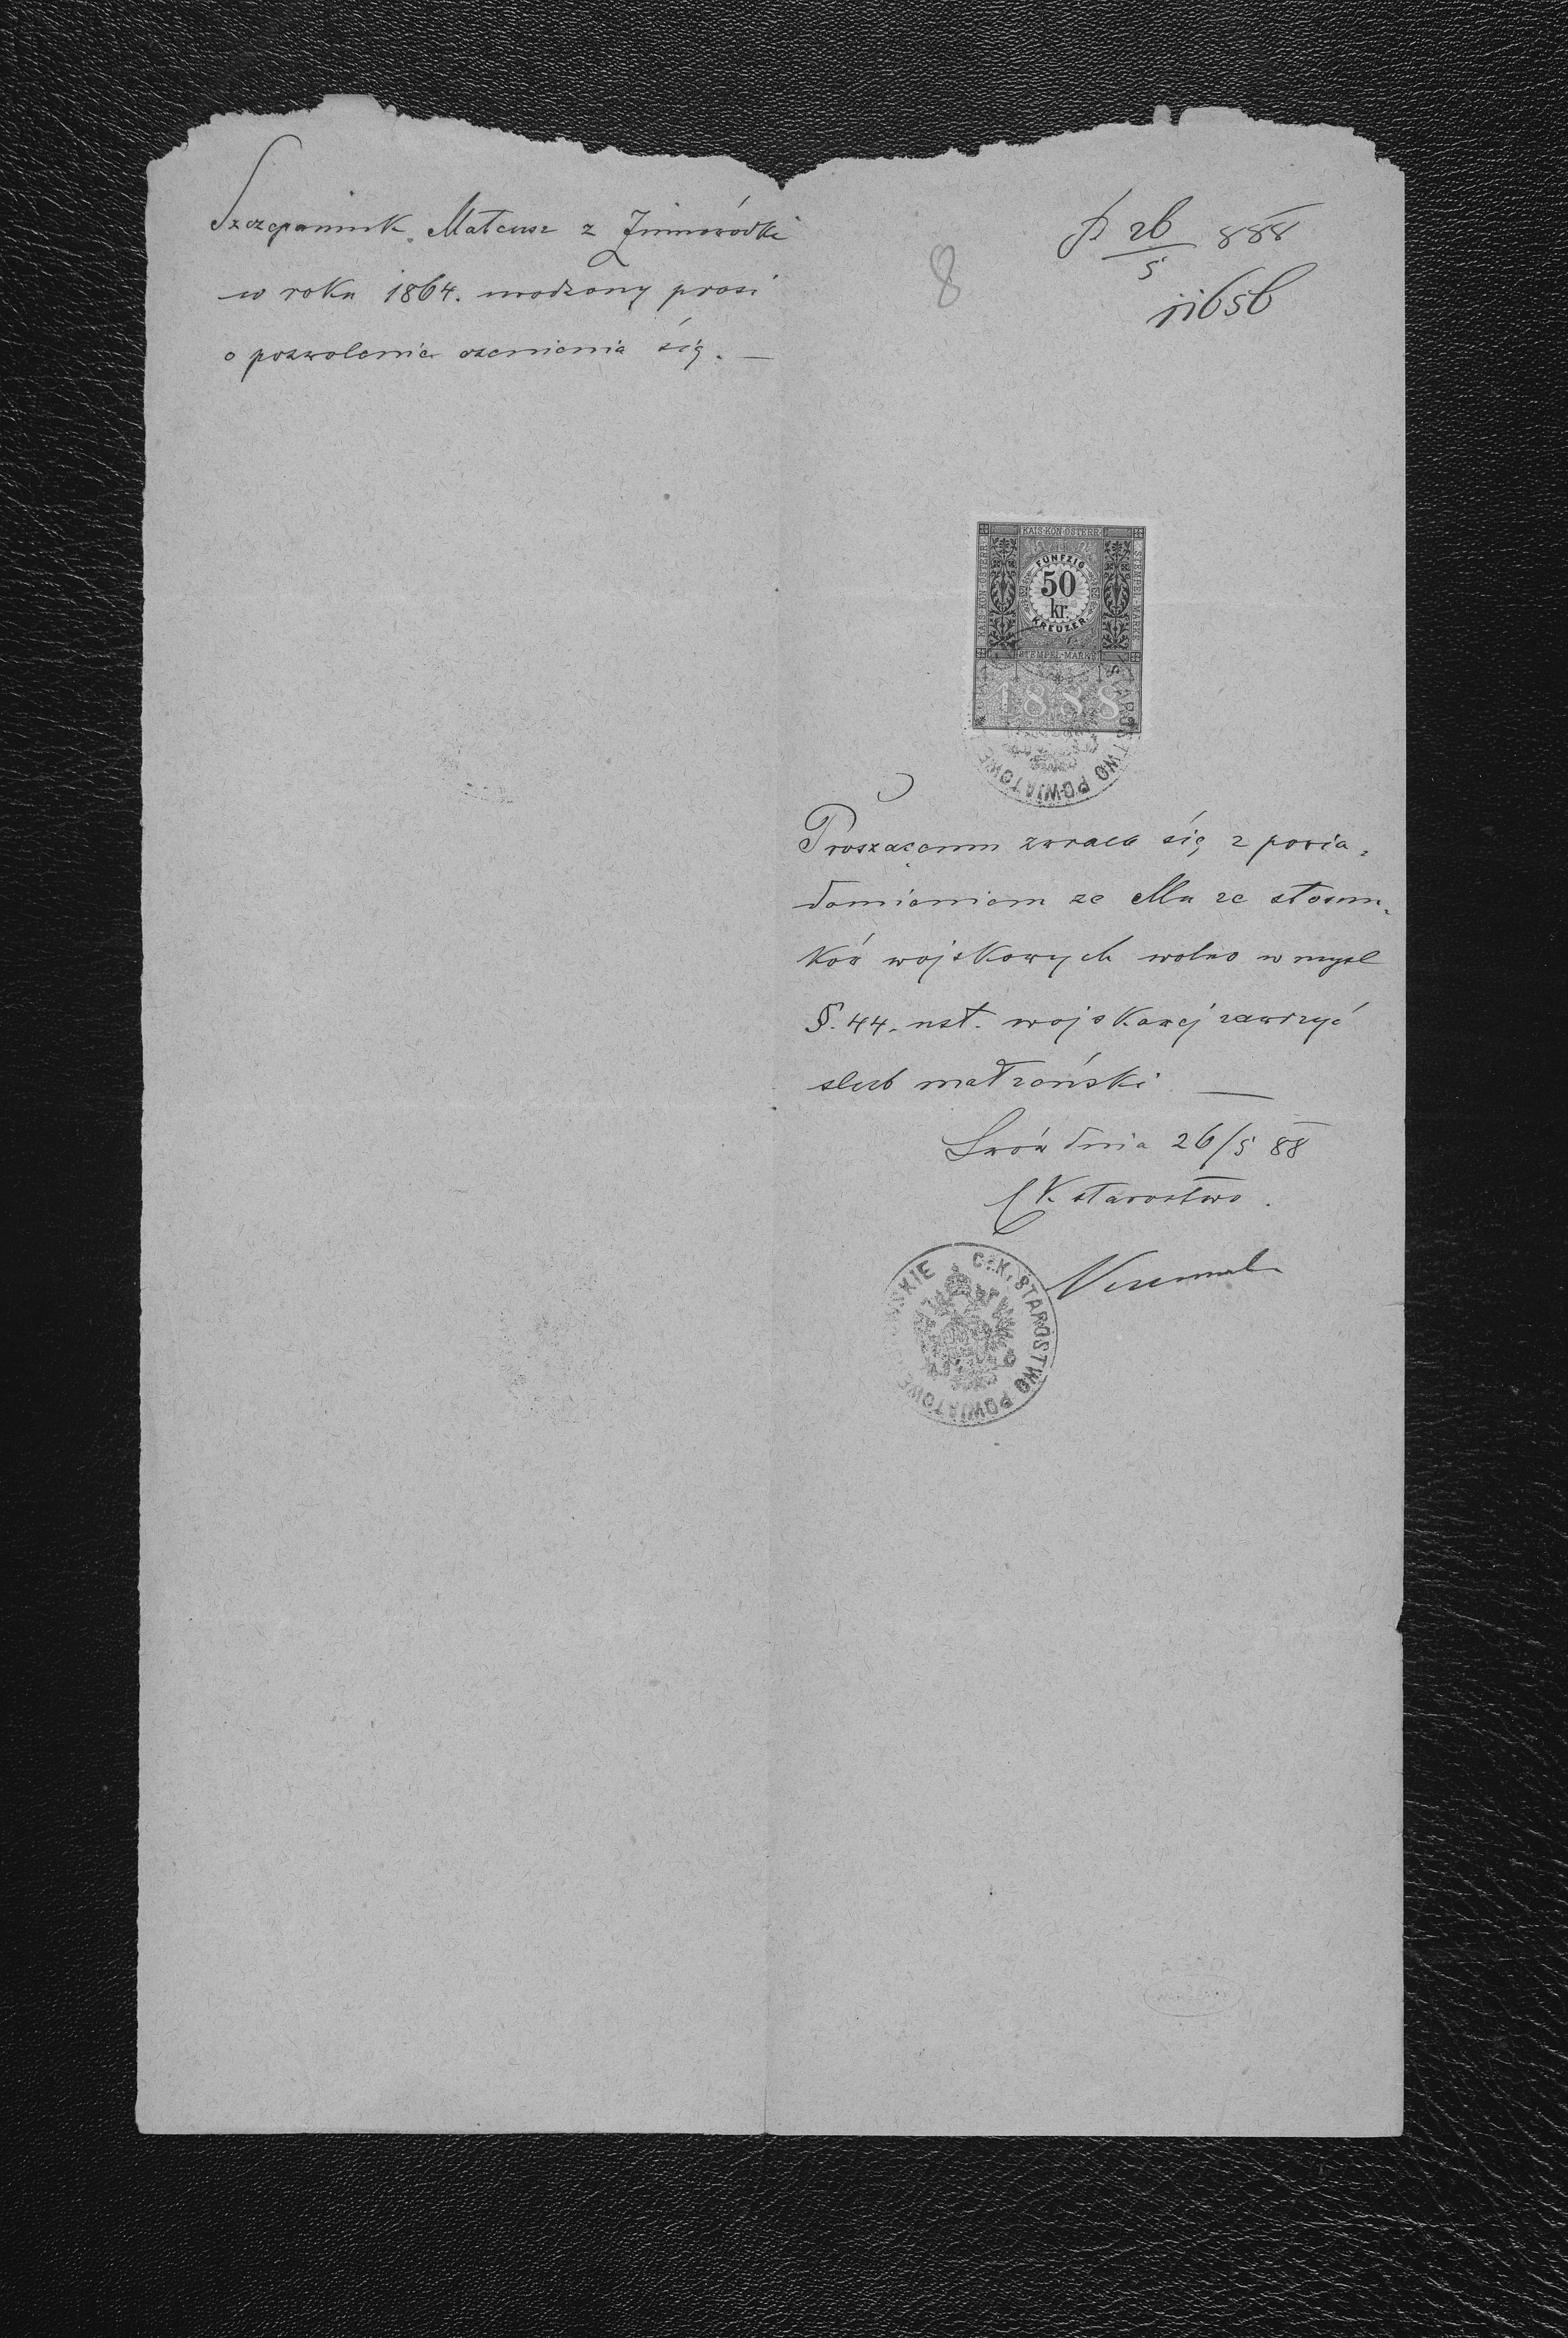 Szczepaniuk Mateusz z Zimnowódki
w roku 1864. urodzony prosi
o pozwolenie ozenienia się. —
8
p 26/5 888
11656
KAIS. KÖN. ÖSTERR.
KAIS. KÖN. ÖSTERR.
STEMPEL-MARKE
FÜNFZIG
50
kr.
KREUZER
STEMPEL-MARKE
1888
STAROSTWO POWIATOWE
Proszącemu zwraca się z powia„
domieniem ze Mu ze stosun„
ków wojskowych wolno w mysl
§. 44. ust. wojskowej zawrzyć
slub małzoński —
Lwów dnia 26/5 88
C K. starostwo.
C. K. STAROSTWO POWIATOWE